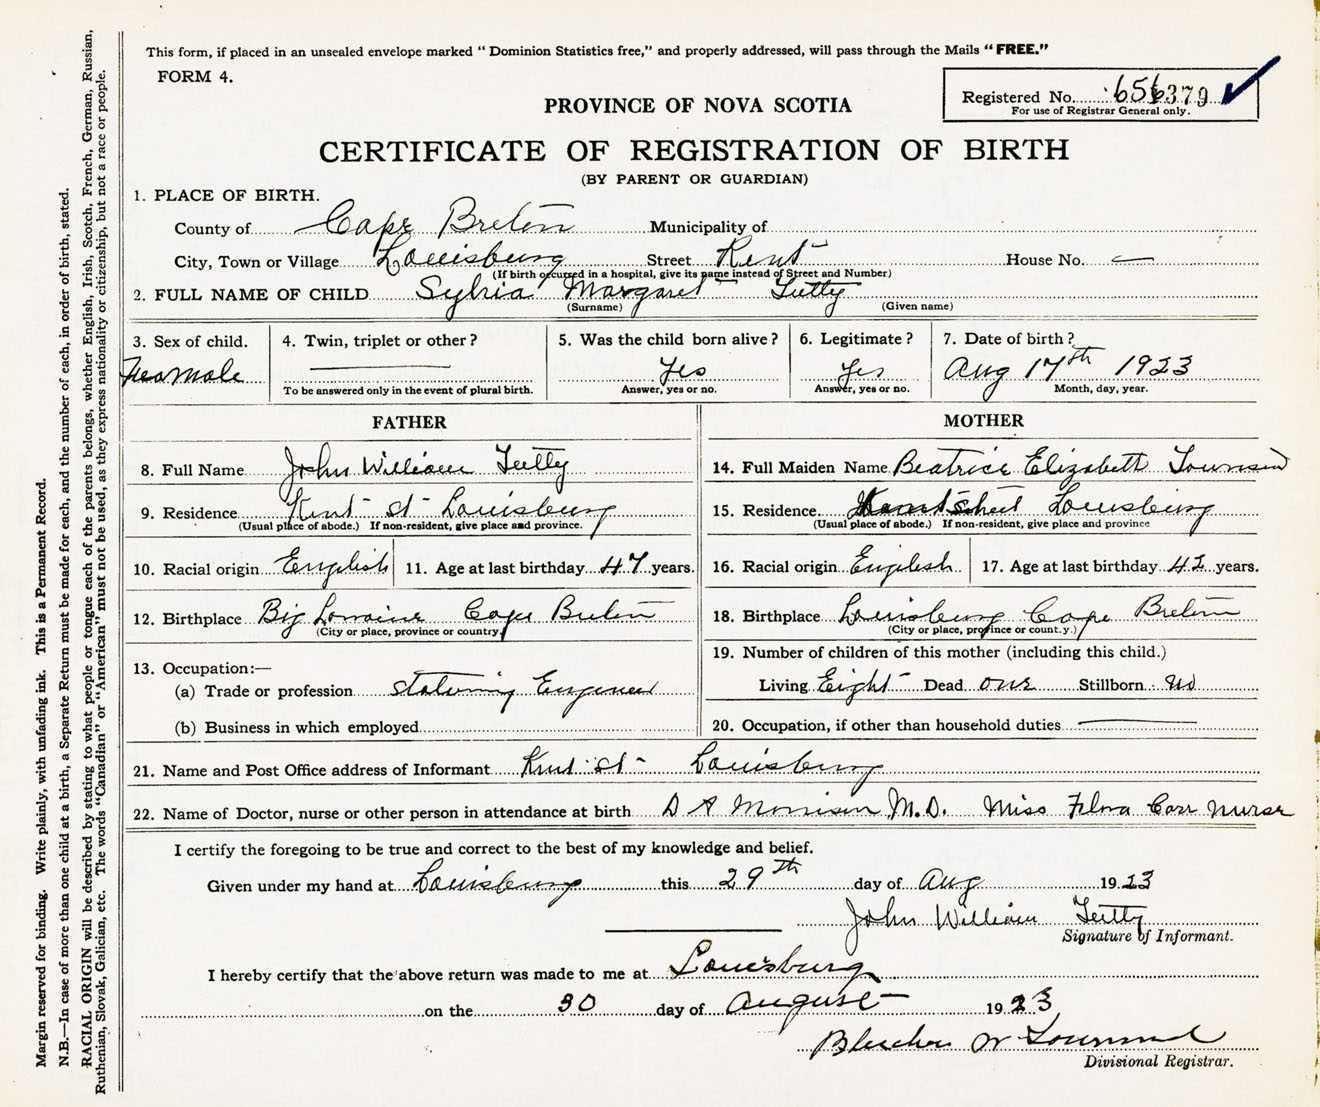 This form, if placed in an unsealed envelope marked "Dominion Statistics free," and properly addressed, will pass through the Mails "FREE."
FORM 4.
Registered No. 379
For use of Registrar General only.
PROVINCE OF NOVA SCOTIA
CERTIFICATE OF REGISTRATION OF BIRTH
(BY PARENT OR GUARDIAN)
1. PLACE OF BIRTH.
County of Cape Breton Municipality of
City, Town or Village Louisburg Street Kent House No. —
(If birth occurred in a hospital, give its name instead of Street and Number)
2. FULL NAME OF CHILD Sylvia Margaret Tutty
(Surname) (Given name)
3. Sex of child. 4. Twin, triplet or other? 5. Was the child born alive? 6. Legitimate? 7. Date of birth?
Feamale — Yes Yes Aug 17th 1923
To be answered only in the event of plural birth. Answer, yes or no. Answer, yes or no. Month, day, year.
FATHER MOTHER
8. Full Name John William Tutty 14. Full Maiden Name Beatrice Elizabeth Townsend
9. Residence Kent st Louisburg 15. Residence Kent Street Louisburg
(Usual place of abode.) If non-resident, give place and province. (Usual place of abode.) If non-resident, give place and province
10. Racial origin English 11. Age at last birthday 47 years. 16. Racial origin English 17. Age at last birthday 42 years.
12. Birthplace Big Lorraine Cape Breton 18. Birthplace Louisburg Cape Breton
(City or place, province or country) (City or place, province or count.y.)
13. Occupation:— 19. Number of children of this mother (including this child.)
(a) Trade or profession Engineer Living Eight Dead one Stillborn no
(b) Business in which employed 20. Occupation, if other than household duties —
21. Name and Post Office address of Informant Kent st Louisburg
22. Name of Doctor, nurse or other person in attendance at birth D A Morrison M.D. Miss Flora Carr Nurse
I certify the foregoing to be true and correct to the best of my knowledge and belief.
Given under my hand at Louisburg this 29th day of Aug 1923
John William Tutty
Signature of Informant.
I hereby certify that the above return was made to me at Louisburg
on the 30 day of August 1923
W Townsend
Divisional Registrar.
Margin reserved for binding. Write plainly, with unfading ink. This is a Permanent Record.
N.B.—In case of more than one child at a birth, a Separate Return must be made for each, and the number of each, in order of birth, stated.
RACIAL ORIGIN will be described by stating to what people or tongue each of the parents belongs, whether English, Irish, Scotch, French, German, Russian,
Ruthenian, Slovak, Galician, etc. The words "Canadian" or "American" must not be used, as they express nationality or citizenship, but not a race or people.